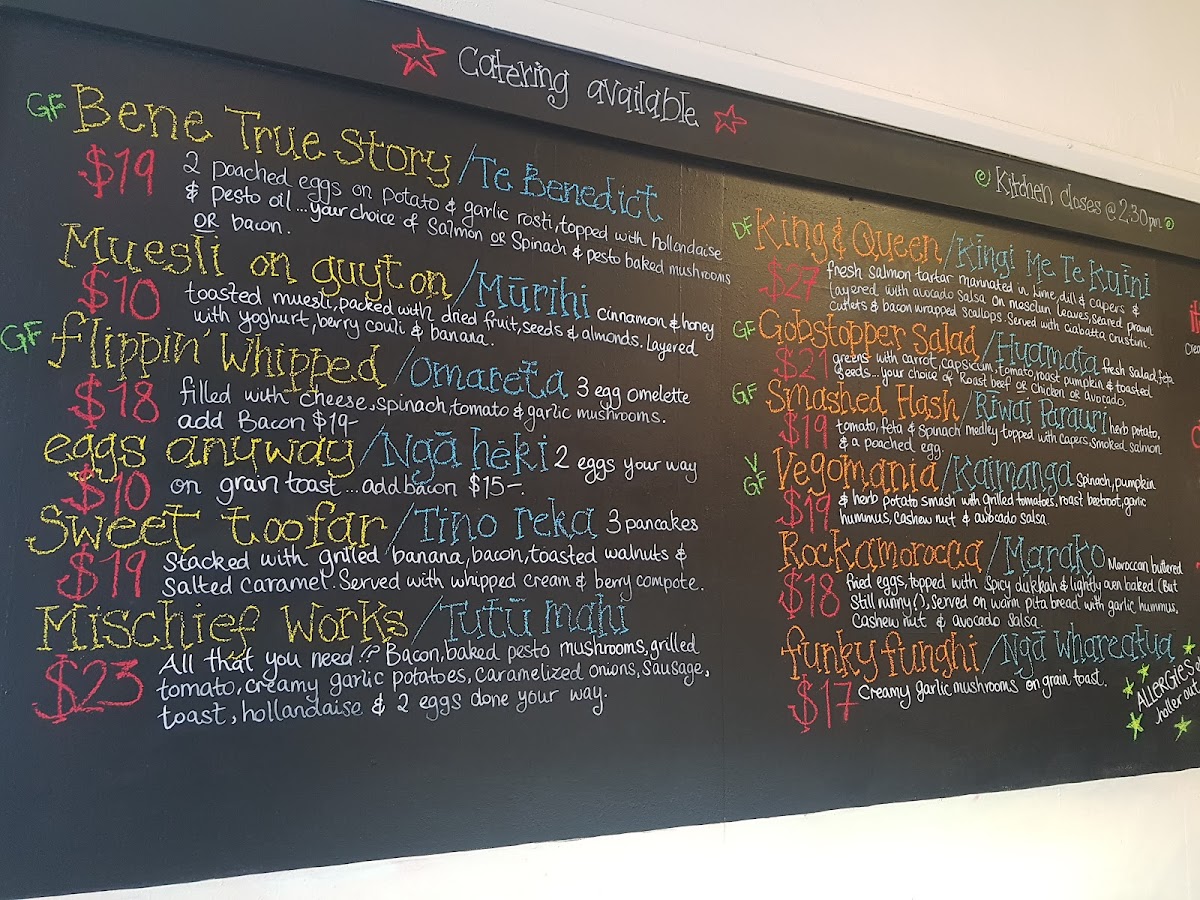 Catering available
Kitchen closes @ 2:30pm
GF Bene True Story/Te Benedict
$19 2 poached eggs on potato & garlic rosti, topped with hollandaise
& pesto oil...your choice of Salmon OR Spinach & pesto baked mushrooms
OR bacon.
Muesli on guyton/Mūrihi cinnamon & honey
$10 toasted muesli, packed with dried fruit, seeds & almonds. Layered
with yoghurt, berry couli & banana.
GF flippin' Whipped/Omareta 3 egg omelette
$18 filled with cheese, spinach, tomato & garlic mushrooms.
add Bacon $19-
eggs anyway/Ngā hēki 2 eggs your way
$10 on grain toast...add bacon $15-.
Sweet toofar/Tino reka 3 pancakes
$19 Stacked with grilled banana, bacon, toasted walnuts &
Salted caramel. Served with whipped cream & berry compote.
Mischief Works/Tutū mahi
$23 All that you need!? Bacon, baked pesto mushrooms, grilled
tomato, creamy garlic potatoes, caramelized onions, sausage,
toast, hollandaise & 2 eggs done your way.
DF King & Queen/Kīngi Me Te Kuīni
$27 fresh salmon tartar marinated in lime, dill & capers &
layered with avocado salsa on mesclun leaves, seared prawn
cutlets & bacon wrapped scallops. Served with ciabatta crustini.
GF Gobstopper Salad/Huamata fresh salad, feta
$21 greens with carrot, capsicum, tomato, roast pumpkin & toasted
seeds...your choice of Roast beef OR Chicken OR avocado.
GF Smashed Hash/Rīwai Parauri herb potato,
$19 tomato, feta & spinach medley topped with capers, smoked salmon
& a poached egg.
V GF Vegomania/Kaimanga Spinach, pumpkin
$19 & herb potato smash with grilled tomatoes, roast beetroot, garlic
hummus, cashew nut & avocado salsa.
Rockamorocca/Marako Moroccan buttered
$18 fried eggs, topped with spicy dukkah & lightly oven baked. (But
still runny!), served on warm pita bread with garlic hummus,
Cashew nut & avocado salsa.
funky funghi/Ngā Whareatua
$17 Creamy garlic mushrooms on grain toast.
ALLERGIES
holler out